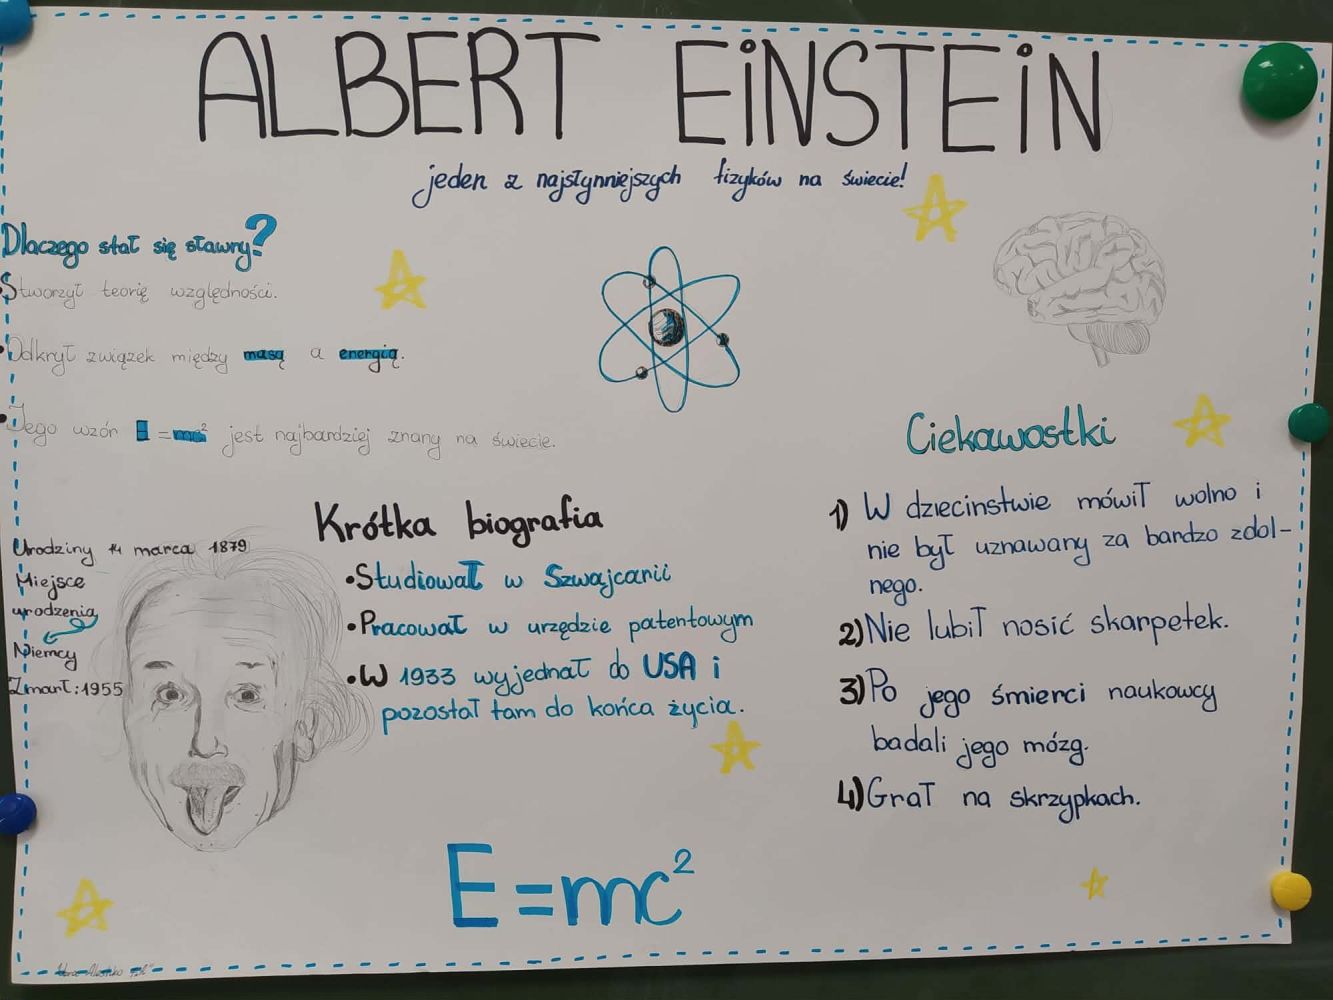 ALBERT EiNSTEiN
jeden z najsłynniejszych fizyków na świecie!
Dlaczego stał się sławny?
Stworzył teorię względności.
•Odkrył związek między masą a energią.
•Jego wzór E=mc² jest najbardziej znany na świecie.
Urodziny 14 marca 1879
Miejsce
urodzenia
Niemcy
Zmarł:1955
Krótka biografia
•Studiował w Szwajcarii
•Pracował w urzędzie patentowym
•W 1933 wyjednał do USA i
pozostał tam do końca życia.
Ciekawostki
1) W dziecinstwie mówił wolno i
nie był uznawany za bardzo zdol-
nego.
2) Nie lubił nosić skarpetek.
3) Po jego śmierci naukowcy
badali jego mózg.
4) Grał na skrzypkach.
E=mc²